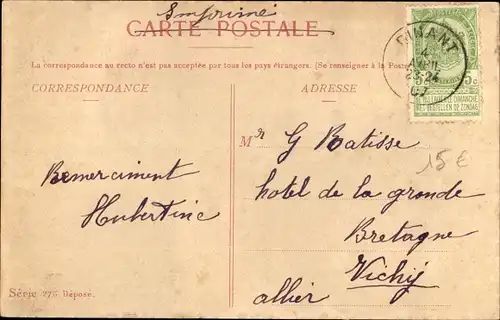 Imprimé
CARTE POSTALE
La correspondance au recto n'est pas acceptée par tous les pays étrangers. (Se renseigner à la Poste
CORRESPONDANCE
ADRESSE
DINANT
4
AVRIL
23-24
07
5c
NE PAS LIVRER LE DIMANCHE
NIET BESTELLEN OP ZONDAG
Mr G Batisse
15 €
hotel de la grande
Bretagne
Vichy
allier
Remerciment
Hubertine
Série 27% Déposé.